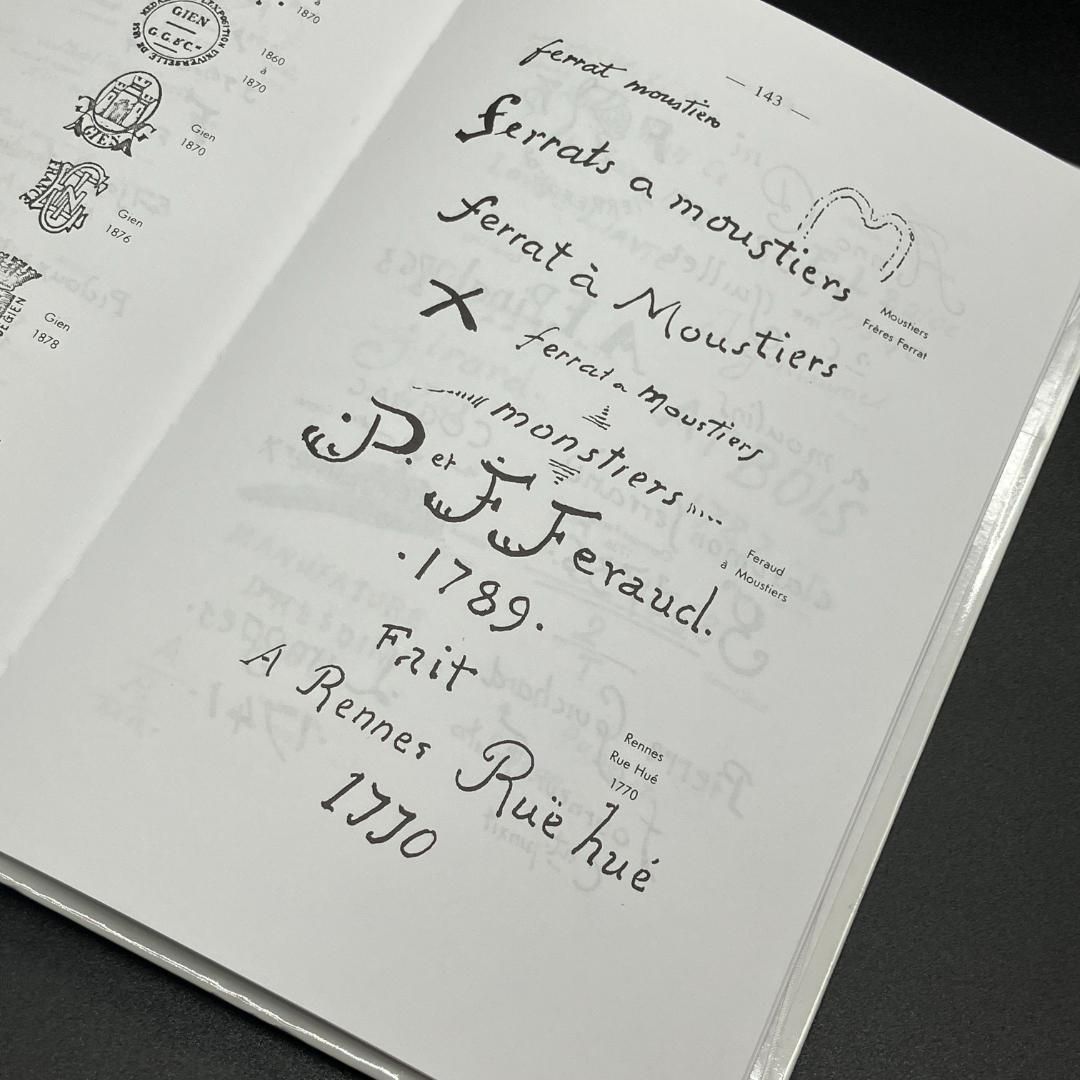 1870
EXPOSITION UNIVERSELLE DE 1855
GIEN
G.G.&C.ie
1860
à
1870
GIEN
Gien
1870
FRANCE
Gien
1876
DE GIEN
Gien
1878
— 143 —
ferrat moustiers
ferrats a moustiers
Moustiers
Frères Ferrat
ferrat à Moustiers
X
ferrat a moustiers
monstiers
P. et J Feraud.
Feraud
à Moustiers
.1789.
Fait
A Rennes Ruë hué
Rennes
Rue Hué
1770
1770